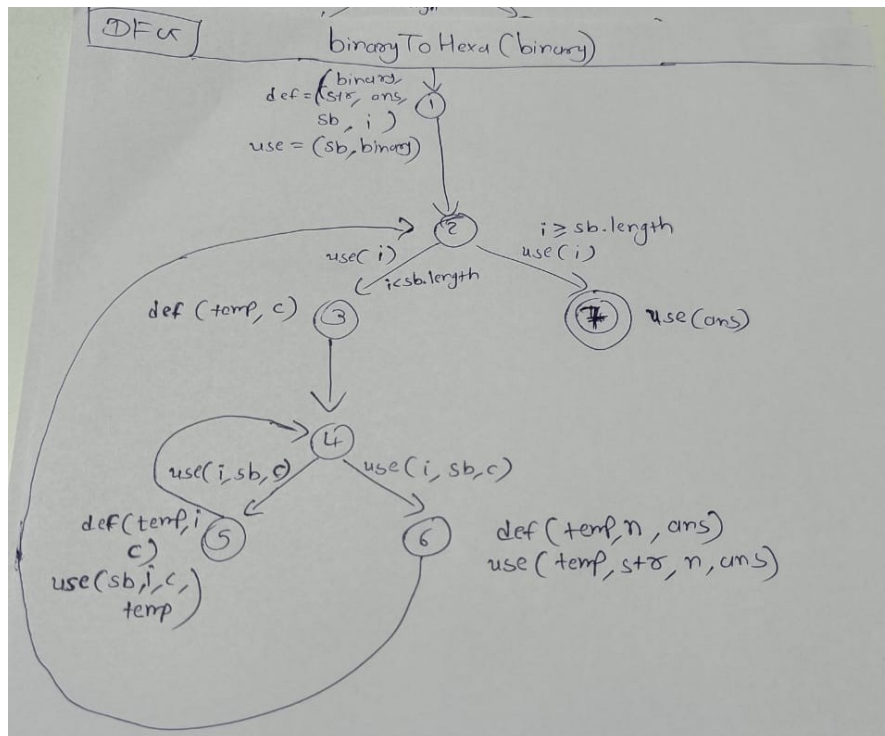 DFG
binaryToHexa (binary)
def = (binary,
str, ans,
sb, i)
use = (sb, binary)
1
2
use( i)
i<sb.length
i ≥ sb.length
use( i)
def (temp, c)
3
7
use (ans)
4
use(i, sb, c)
use(i, sb, c)
def(temp, i
c)
use(sb, i, c,
temp)
5
6
def (temp, n, ans)
use (temp, str, n, ans)